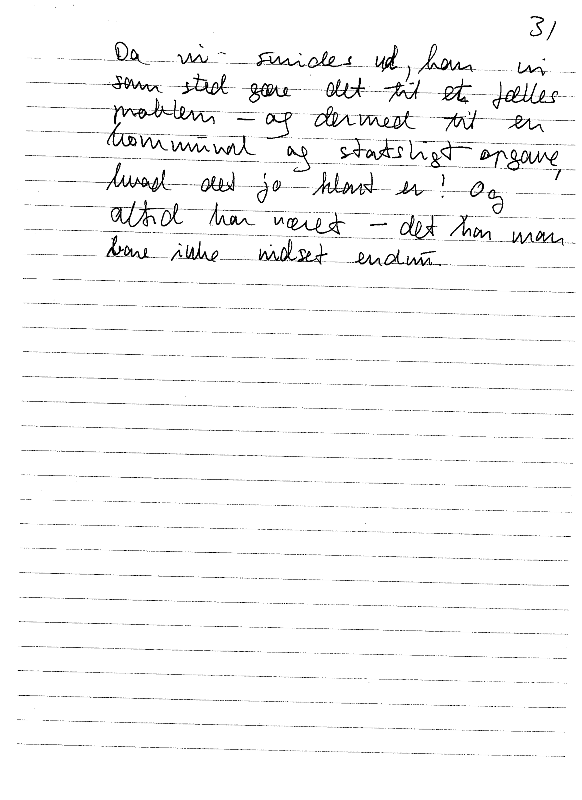 31
Da vi smides ud, kan vi
som sted gøre det til et fælles
problem – og dermed til en
kommunal og statsligt opgave,
hvad det jo klart er! Og
altid har været – det har man
bare ikke indset endnu